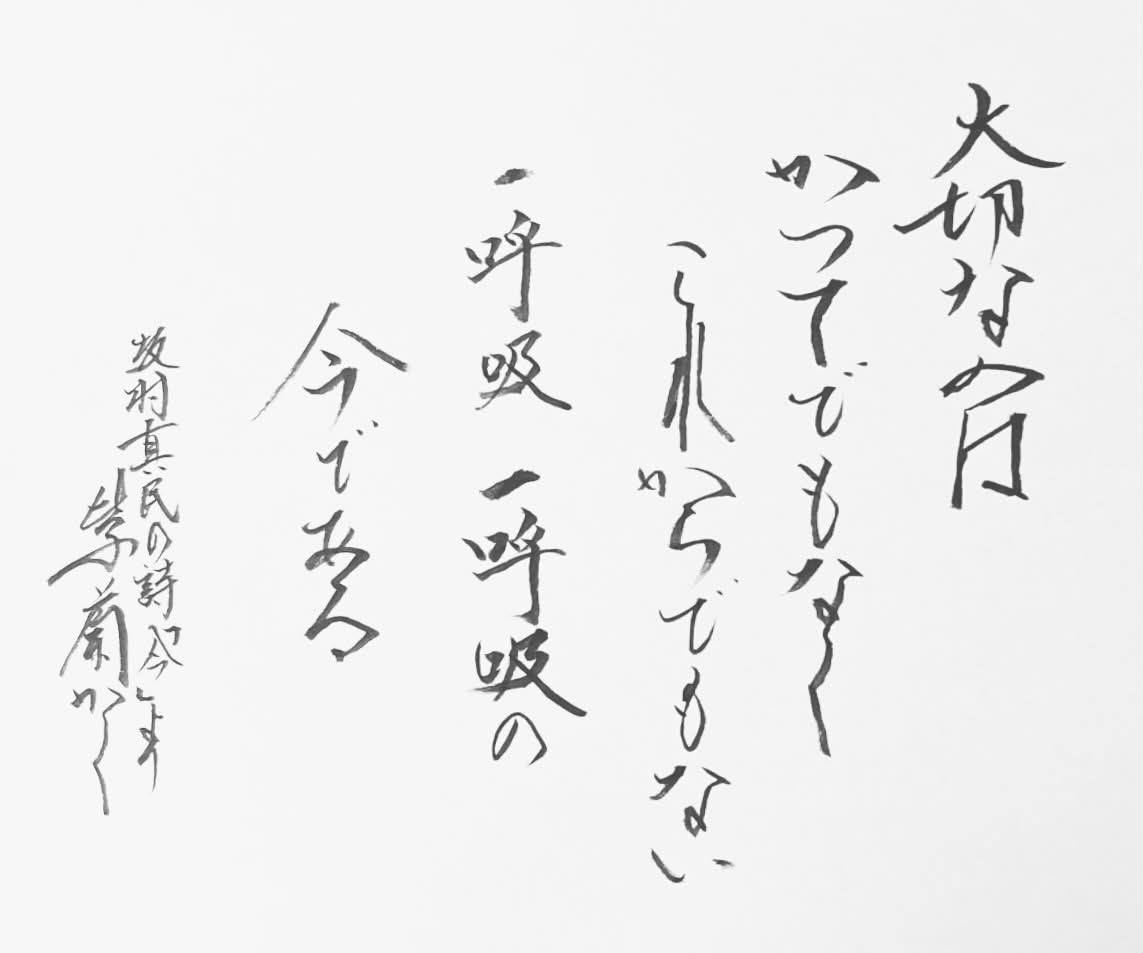 大切なのは
かつてでもなく
これからでもない
一呼吸 一呼吸の
今である
坂村真民の詩「今」より
紫蘭かく